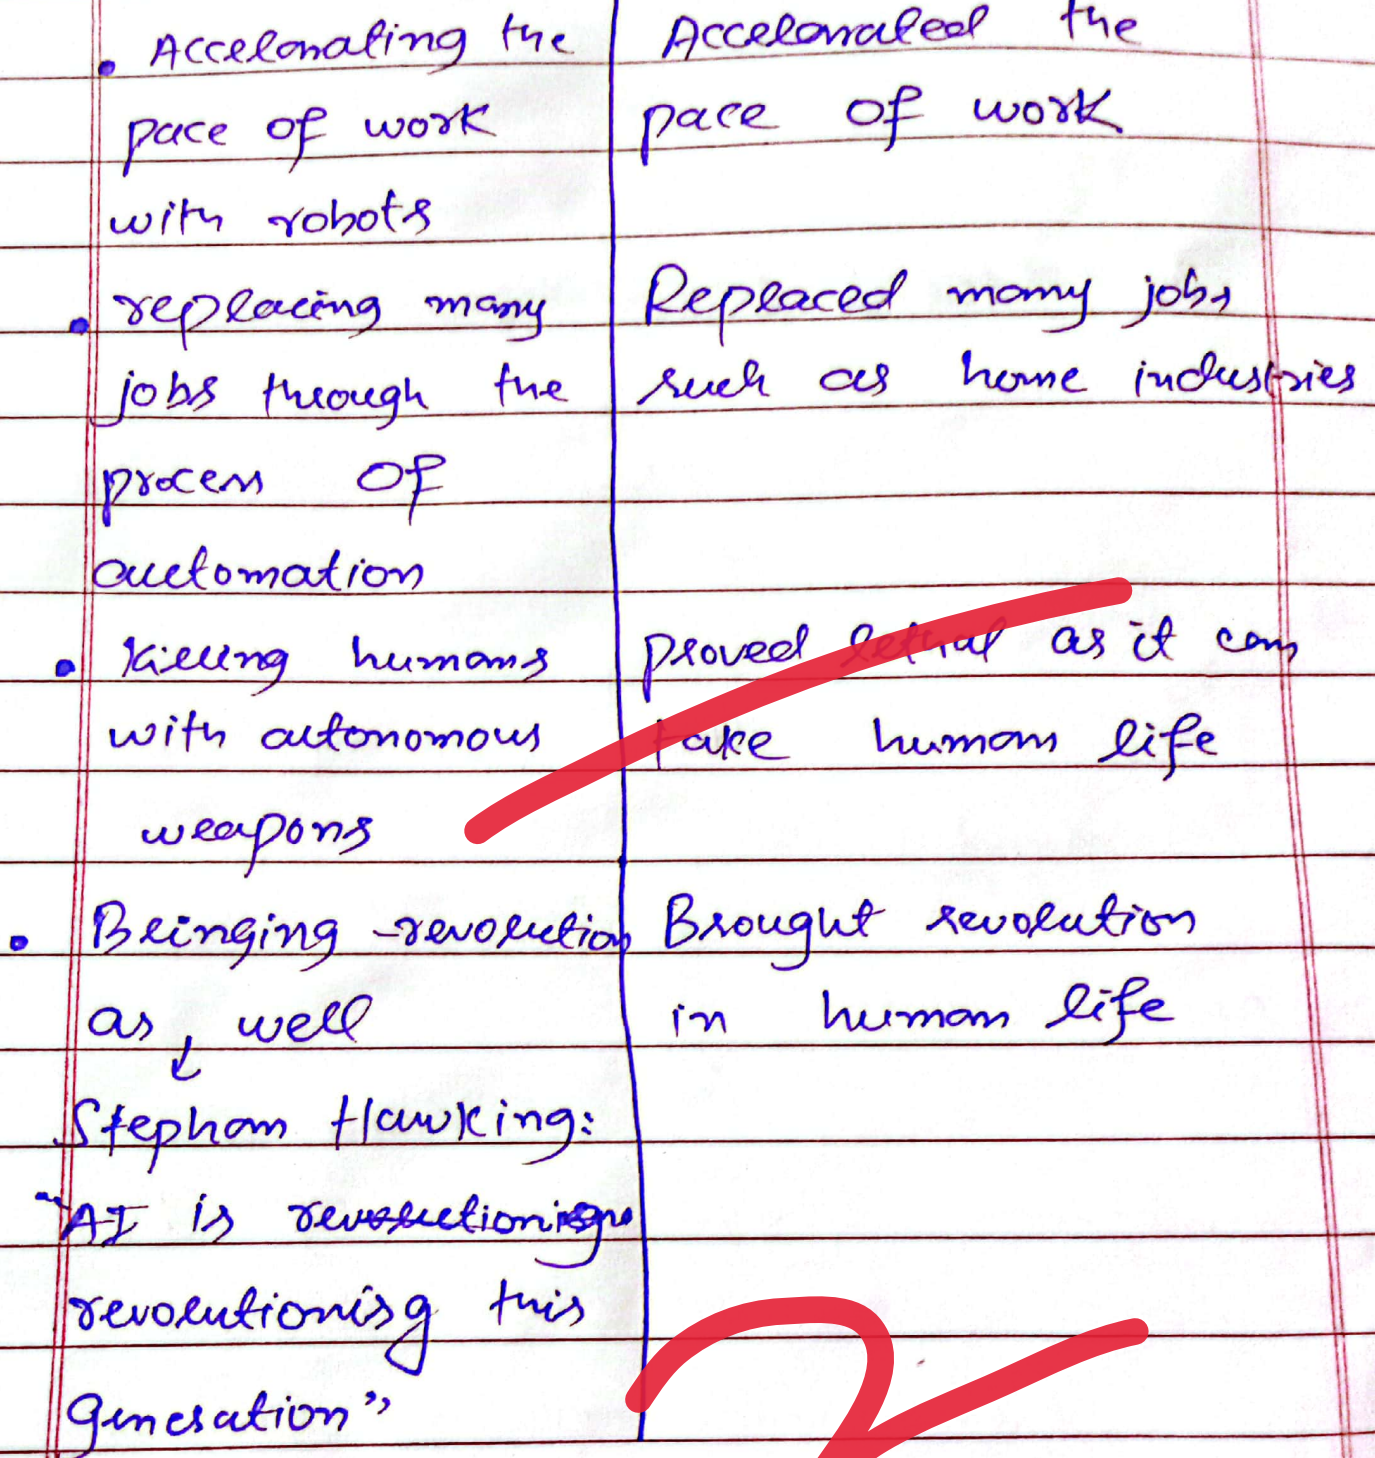 • Accelerating the
pace of work
with robots
• replacing many
jobs through the
process of
automation
• Killing humans
with autonomous
weapons
• Bringing revolution
as well
Stephan Hawking:
"AI is
revolutionisg this
Generation"
Accelerated the
pace of work
Replaced many jobs
such as home industries
proved lethal as it can
take human life
Brought revolution
in human life
2